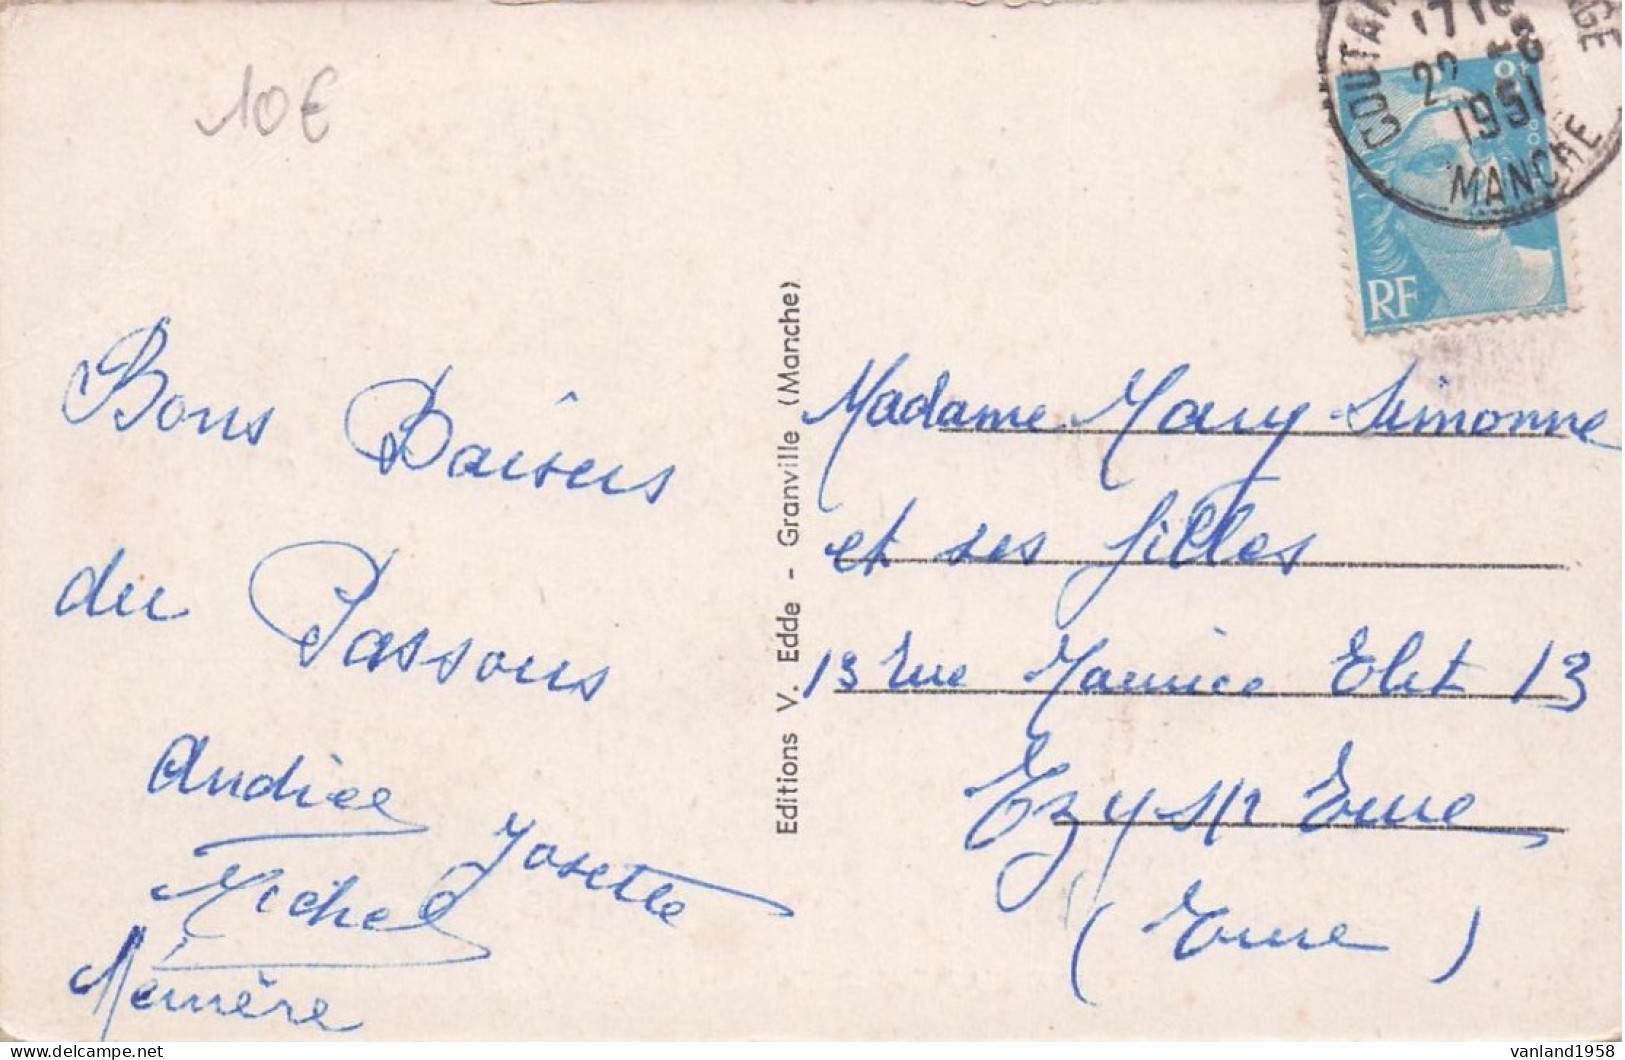 10€
Bons Baisers
du Passous
Andrée
Josette
Michel
Mémère
Editions V. Edde - Granville (Manche)
8F
RF
17H
22 -8
1951
MANCHE
Madame Mary Simonne
et ses filles
13 rue Maurice Elet 13
Ezy s/r Eure
(Eure)
vanland1958